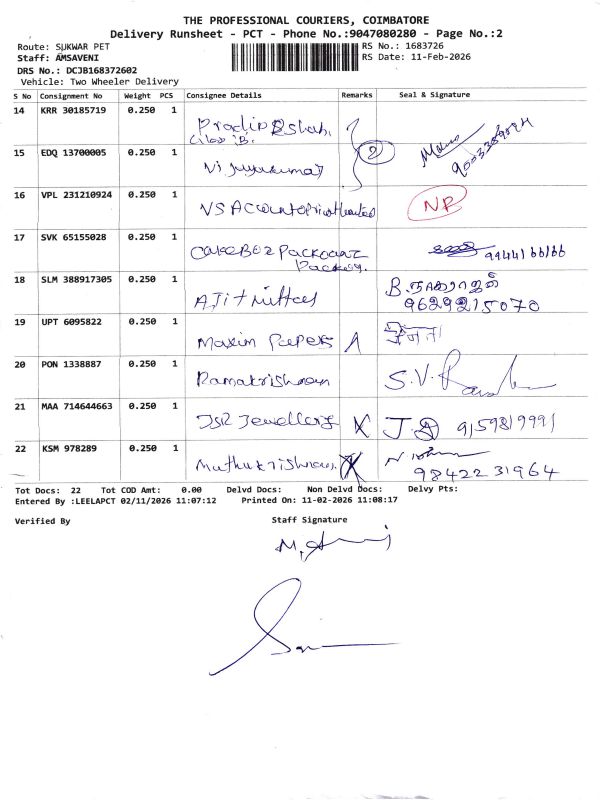 THE PROFESSIONAL COURIERS, COIMBATORE
Delivery Runsheet - PCT - Phone No.:9047080280 - Page No.:2
Route: SUKWAR PET
RS No.: 1683726
Staff: AMSAVENI
RS Date: 11-Feb-2026
DRS No.: DCJB168372602
Vehicle: Two Wheeler Delivery
S No Consignment No Weight PCS Consignee Details Remarks Seal & Signature
14 KRR 30185719 0.250 1 Pradip
15 EDQ 13700005 0.250 1 Vijayakumar 2
16 VPL 231210924 0.250 1 VS NR
17 SVK 65155028 0.250 1 CakeBoz 9944166166
18 SLM 388917305 0.250 1 Ajit mittal B.நாகராஜன்
9629215070
19 UPT 6095822 0.250 1 Maxim Papers
20 PON 1338887 0.250 1 Ramakrishnan S.V.
21 MAA 714644663 0.250 1 JSR Jewellery X J. 9159819991
22 KSM 978289 0.250 1 Muthukrishnan X
9842231964
Tot Docs: 22 Tot COD Amt: 0.00 Delvd Docs: Non Delvd Docs: Delvy Pts:
Entered By :LEELAPCT 02/11/2026 11:07:12 Printed On: 11-02-2026 11:08:17
Verified By Staff Signature